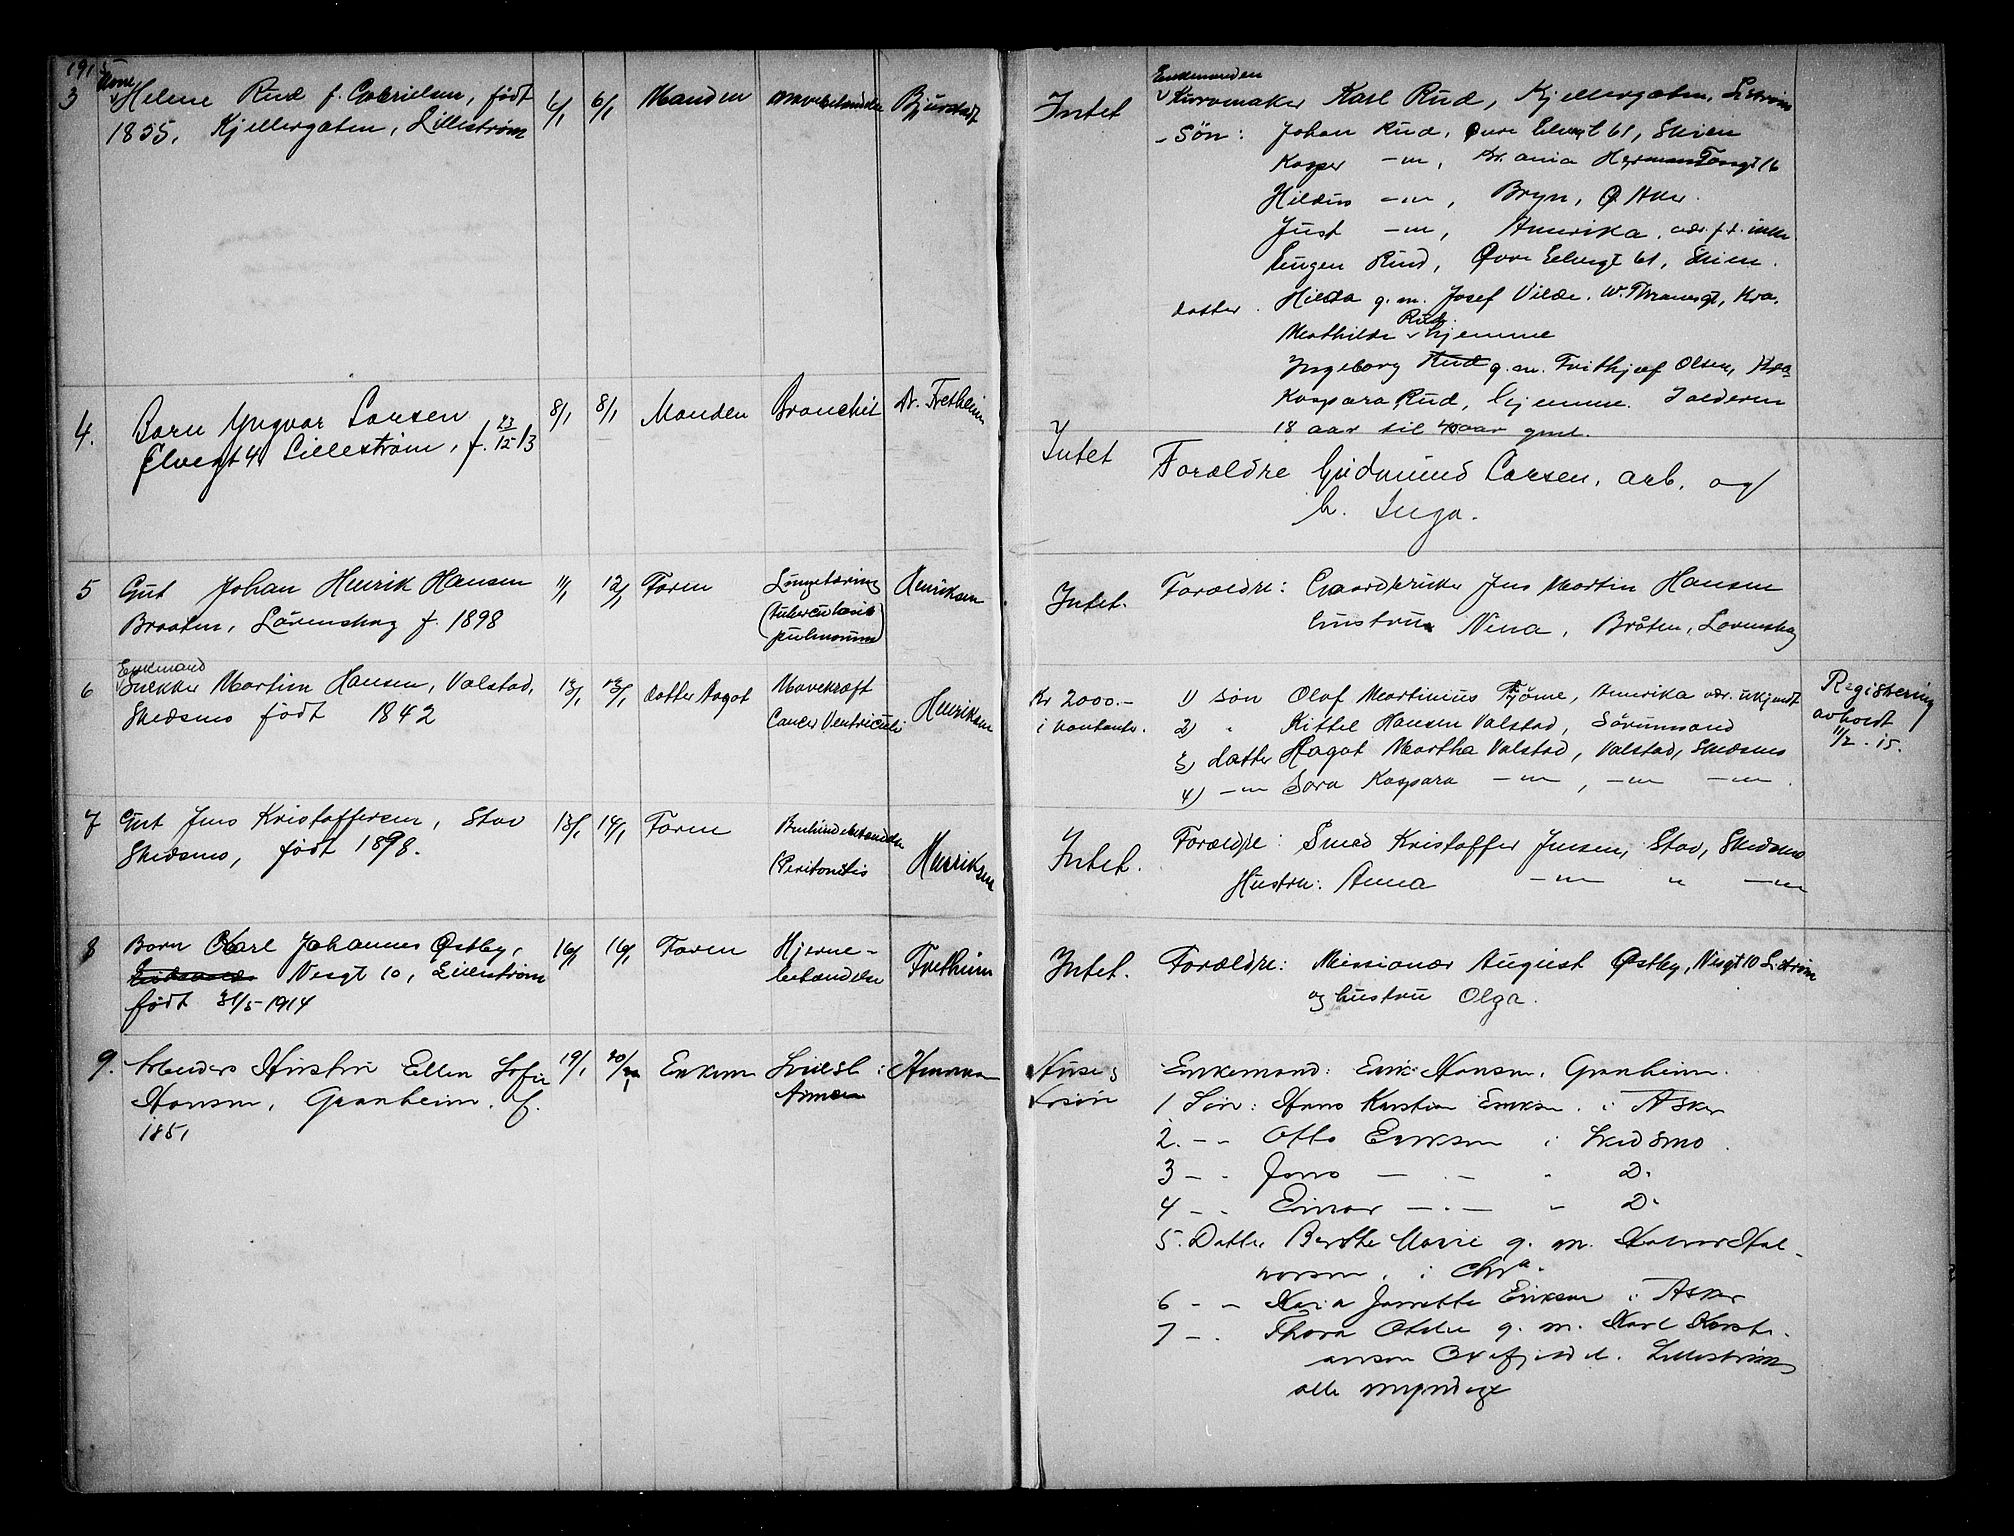 1915
3 Kone Helene Rud f. Gabrielsen, født 6/1 6/1 Manden Bjurstedt
1855, Kjellergaten, Lillestrøm
4. Barn Yngvar Larsen 8/1 8/1 Manden Bronchit Dr. Fretheim
Elvegt 4 Lillestrøm, f. 23/12 13
5 Gut Johan Henrik Hansen 11/1 12/1 Faren Lungetæring Henriksen
Braaten, Lørenskog f. 1898 (Tuberculosis
pulmonum)
6 Enkemand Snekker Martin Hansen, Valstad, 13/1 13/1 datter Aagot Mavekræft Henriksen
Skedsmo født 1842 Cancer Ventriculi
7 Gut Jens Kristoffersen, Stav 13/1 14/1 Faren Henriksen
Skedsmo, født 1898. (Peritonitis
8 Barn Karl Johannes Østby, 16/1 16/1 Faren Hjerne- Fretheim
Nesgt 10, Lillestrøm betændelse
født 31/5-1914
9. Hustru Ellen Sofie 19/1 20/1 Enkem
Hansen, Granheim. f.
1851
Enkemanden
Intet Kurvmaker Karl Rud, Kjellergaten, Lstrøm
- Søn: Johan Rud, Øvre Elvegt 61, Skien
Kasper -"-, Kr.ania
-"-, Bryn, Ø Aker.
Just -"-, Amerika.
Eugen Rud, Øvre Elvegt 61, Skien.
datter. Hilda g. m. Josef Vilde. W. Thranesgt, Kra.
Mathilde Rud hjemme
Ingeborg Rud g. m. Frithjof Olsen, Kra
Kaspara Rud, hjemme. I alderen
18 aar til 40 aar gml.
Intet Forældre Gudmund Larsen, arb. og
h. Inga.
Intet. Forældre: Gaardbruker Jens Martin Hansen
hustru Nina, Bråten, Lørenskog
Kr 2000.- 1) søn Olaf Martinius Tjøme, Amerika adr. ukjendt Registrering
i kontanter. 2) " Kittel Hansen Valstad, Sørumsand avholdt
3) datter Aagot Martha Valstad, Valstad, Skedsmo 11/2. 15.
4) -"- Sara Kaspara -"-, -"- -"-
Intet. Forældre: Smed Kristoffer Jensen, Stav, Skedsmo
Hustru: Anna -"- " -"-
Intet. Forældre: Missionær August Østby, Nesgt 10 L.strøm
og hustru Olga.
Enkemand: Erik Hansen, Granheim.
1 Søn: Hans Kristian Eriksen. i Asker
2. - - Otto Eriksen i Skedsmo.
3 - - Jens — - — " D.
4 - - Einar — - — " D.
5. Datter Berthe Marie g. m. Halvor Hal-
vorsen, i Chra.
6 - - Eriksen i Asker
7 - - Thora g. m. Karl Kristi-
ansen Lillestrøm
alle myndige